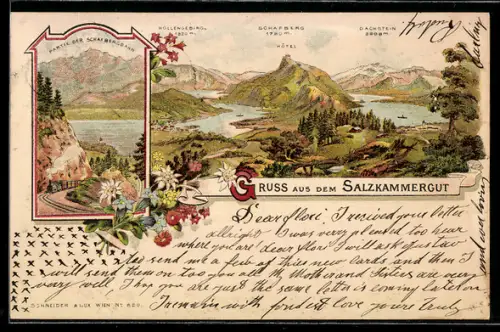 PARTIE DER SCHAFBERGBAHN
HÖLLENGEBIRGE
SCHAFBERG
1780 m.
HÔTEL
DACHSTEIN
GRUSS AUS DEM SALZKAMMERGUT
Dear flori. I received your letter
allright I was very pleased too hear
where you are dear flori I will ask Gustav
too send me a few of this new Cards and then I
will send them on too you all My Mother and Sisters are very
very well. I hop you are just the same letter is coming later on
I remain with fondest love yours truly
and best love
SCHNEIDER & LUX WIEN